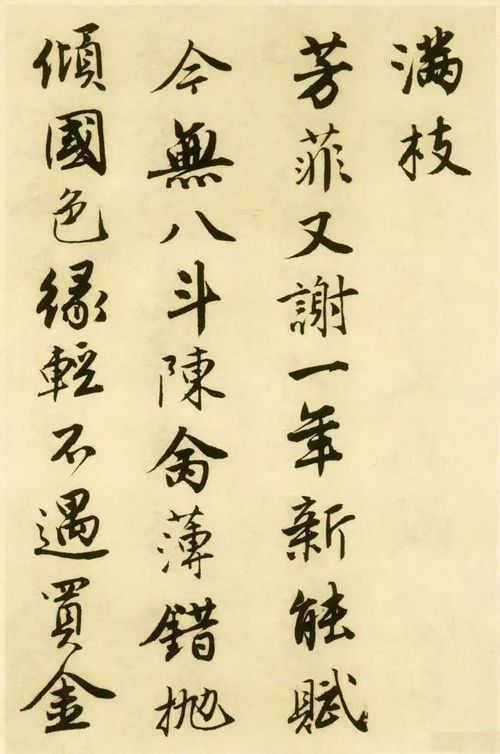 满枝
芳菲又謝一年新能賦
今無八斗陳禽薄錯抛
傾國色緣輕不遇買金